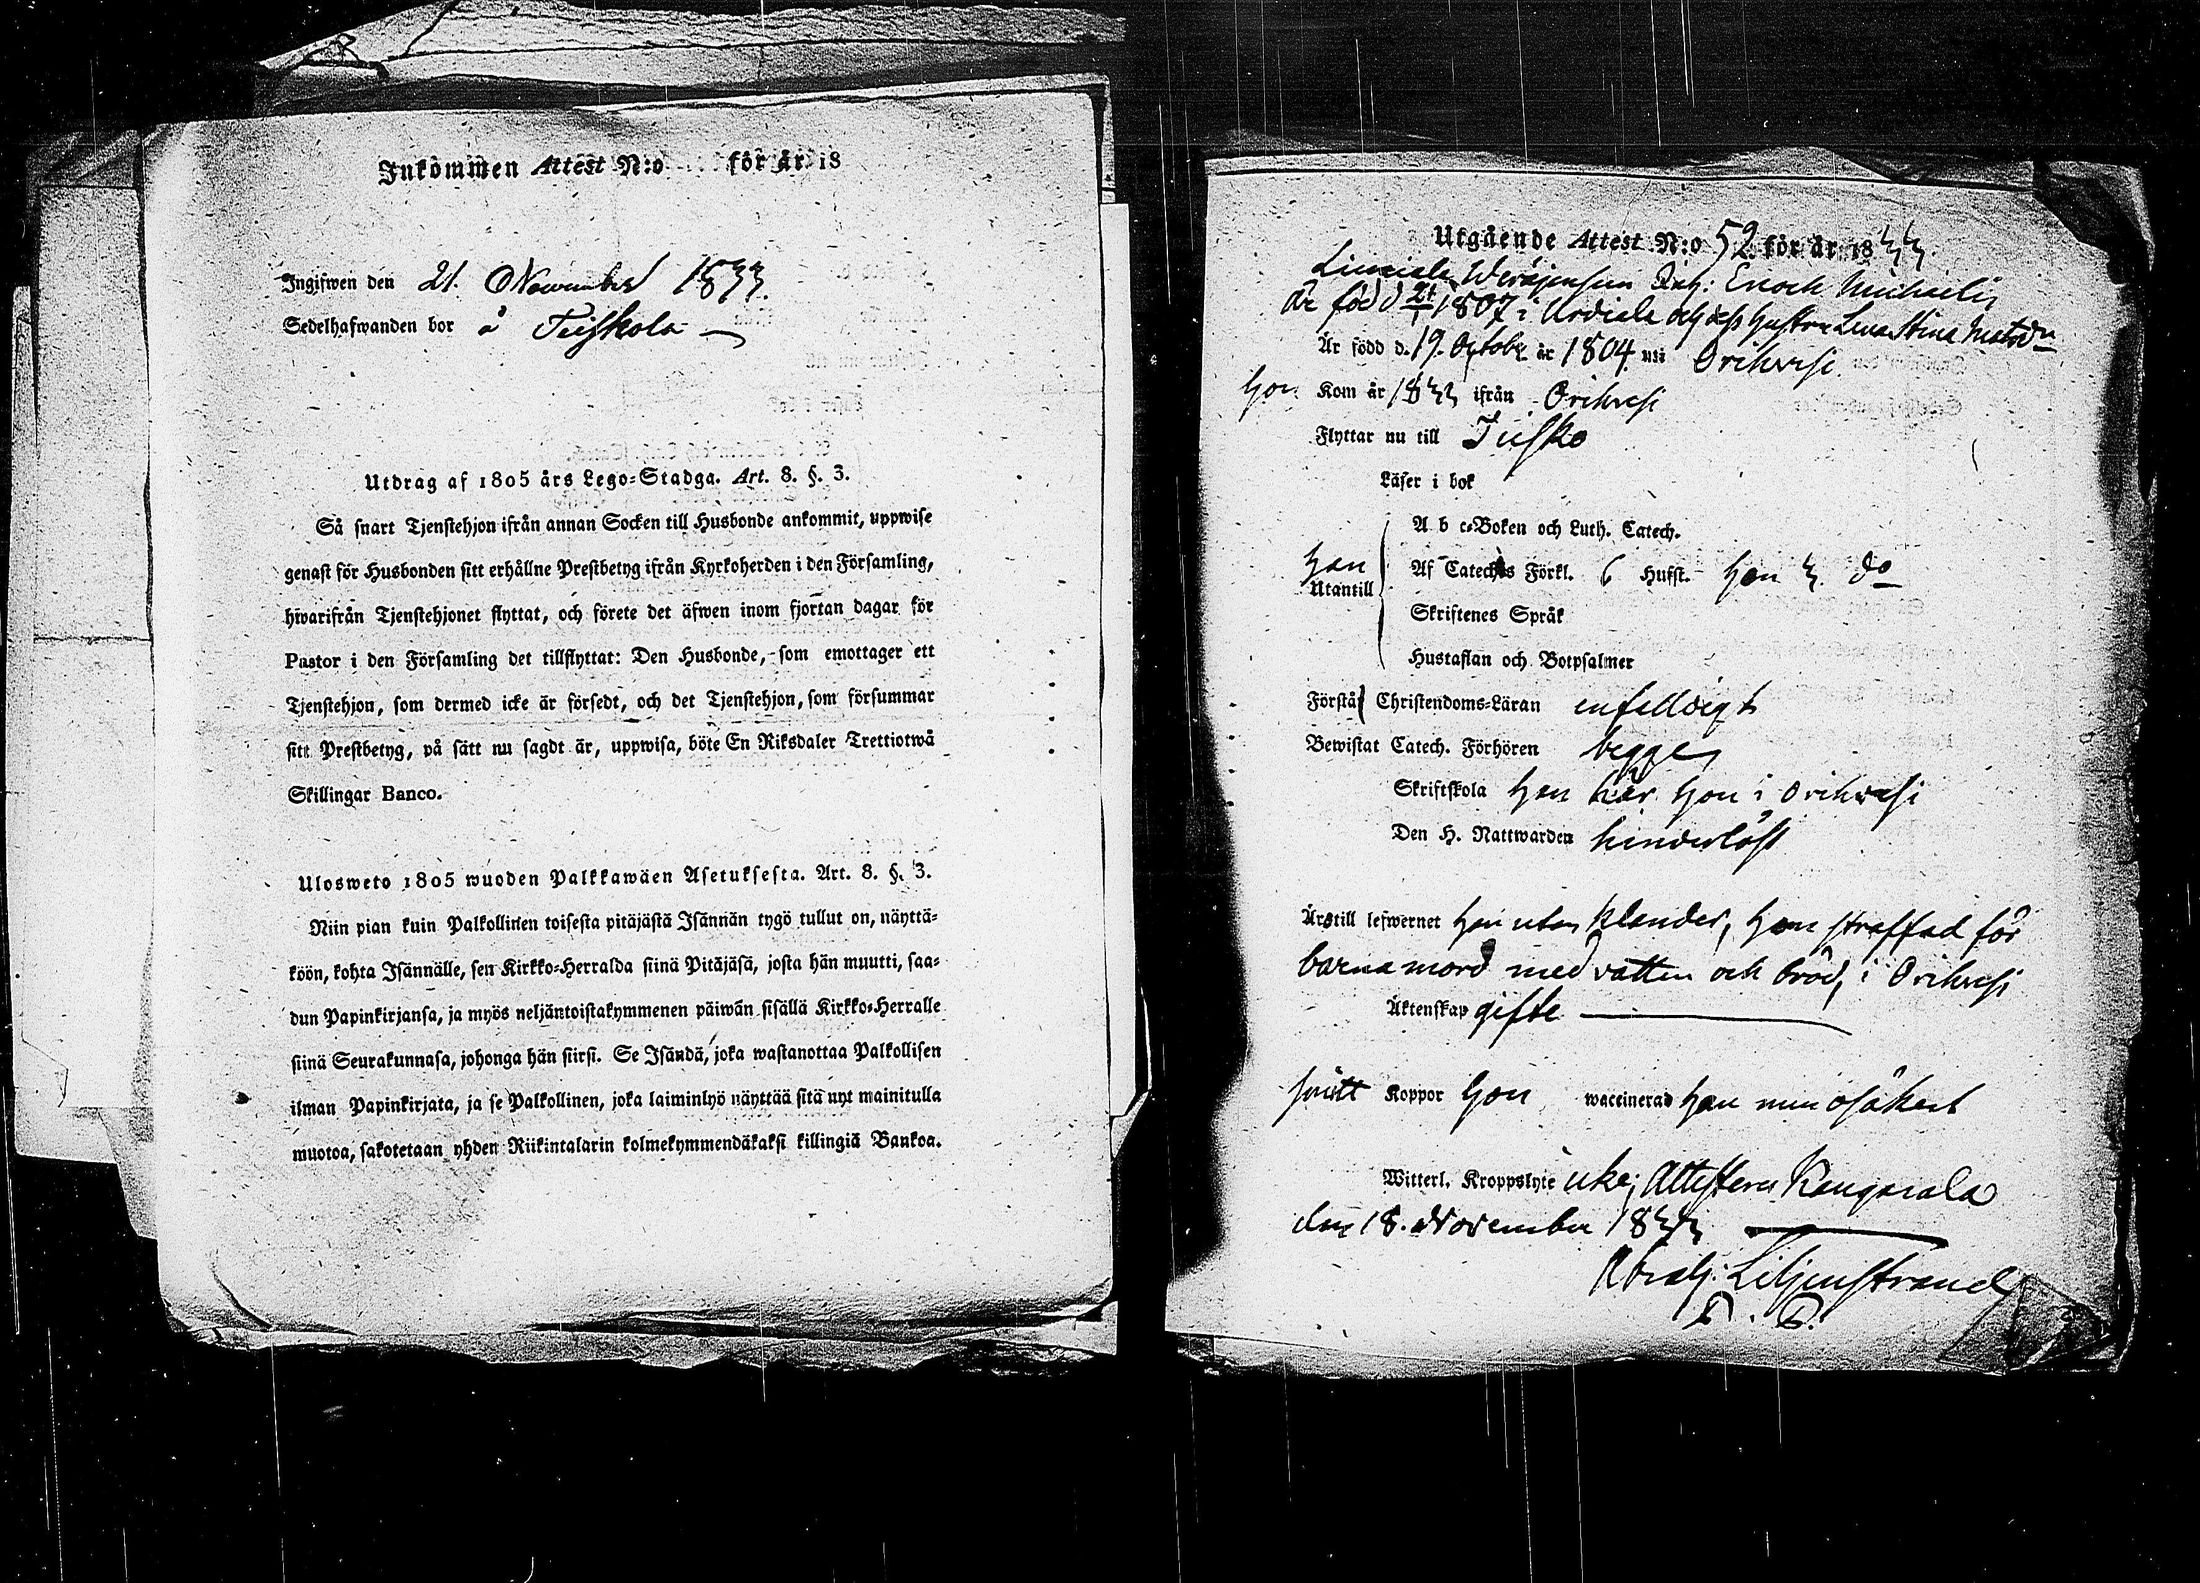 Inkommen Attest N:o för år 18
Ingifwen den 21. November 1833.
Sedelhafwanden bor å Tuiskola
Utdrag af 1805 års Lego=Stadga. Art. 8. §. 3.
Så snart Tjenstehjon ifrån annan Socken till Husbonde ankommit, uppwise
genast för Husbonden sitt erhållne Prestbetyg ifrån Kyrkoherden i den Församling,
hwarifrån Tjenstehjonet flyttat, och förete det äfwen inom fjortan dagar för
Pastor i den Församling det tillflyttat: Den Husbonde, som emottager ett
Tjenstehjon, som dermed icke är försedt, och det Tjenstehjon, som försummar
sitt Prestbetyg, på sätt nu sagdt är, uppwisa, böte En Riksdaler Trettiotwå
Skillingar Banco.
Ulosweto 1805 wuoden Palkkawäen Asetuksesta. Art. 8. §. 3.
Niin pian kuin Palkollinen toisesta pitäjästä Isännän tygö tullut on, näyttä=
köön, kohta Isännälle, sen Kirkko=Herralda siinä Pitäjäsä, josta hän muutti, saa=
dun Papinkirjansa, ja myös neljäntoistakymmenen päiwän sisällä Kirkko=Herralle
siinä Seurakunnasa, johonga hän siirsi. Se Isändä, joka wastanottaa Palkollisen
ilman Papinkirjata, ja se Palkollinen, joka laiminlyö näyttää sitä nyt mainitulla
muotoa, sakotetaan yhden Riikintalarin kolmekymmendäkaksi killingiä Bankoa.
Utgående Attest N:o 52 för år 1833.
Liuciala Enoch Michaelis
är född 21/1 1807 i och dess hustru Lena Stina Matsdr
Är född d. 19. October år 1804 uti Orihvesi
hon Kom år 1833 ifrån Orihvesi
Flyttar nu till Tuisko
Läser i bok
A b c=Boken och Luth. Catech.
han Utantill Af Cateches Förkl. 6 Hufst. hon 3. do
Skriftenes Språk
Hustaflan och Botpsalmer
Förstår Christendoms=Läran enfaldigt
Bewistat Catech. Förhören begge
Skriftskola han här hon i Orihvesi
Den H. Nattwarden hinderlöst
Är till lefwernet han utan klander, hon straffad för
barnamord med vatten och bröd, i Orihvesi
Äktenskap gifte
haft Koppor hon waccinerad han men osäkert
Witterl. Kroppslyte icke, Attestera Kangasala
den 18. November 1833
Abrah: Liljenstrand